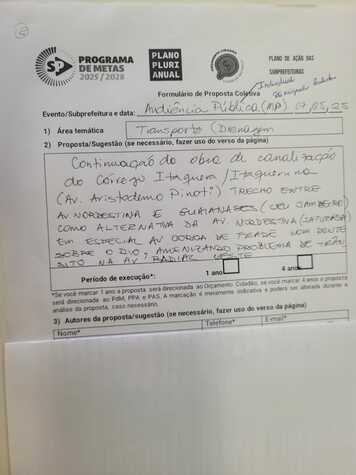 2
SP PROGRAMA DE METAS 2025/2028
PLANO PLURIANUAL
PLANO DE AÇÃO DAS SUBPREFEITURAS
Formulário de Proposta Coletiva
Individual
Evento/Subprefeitura e data: Audiência Pública (MP) 07,05,25
1) Área temática Transporte (Drenagem
2) Proposta/Sugestão (se necessário, fazer uso do verso da página)
Continuação do obra de canalização
do Córrego Itaquera / Itaqueruna
(Av. Aristodemo Pinoti) TRECHO ENTRE
AV NORDESTINA E GUAIANASES (
COMO ALTERNATIVA DA AV NORDESTINA (SATURADA
EM ESPECIAL AV
SOBRE O RIO, AMENIZANDO PROBLEMA DE TRÂN
SITO NA AV, RADIAL LESTE
Período de execução*: 1 ano 4 anos
*Se você marcar 1 ano a proposta será direcionada ao Orçamento Cidadão, se você marcar 4 anos a proposta
será direcionada ao PdM, PPA e PAS. A marcação é meramente indicativa e poderá ser alterada durante a
análise da proposta, caso necessário.
3) Autores da proposta/sugestão (se necessário, fazer uso do verso da página)
Nome* Telefone* E-mail*